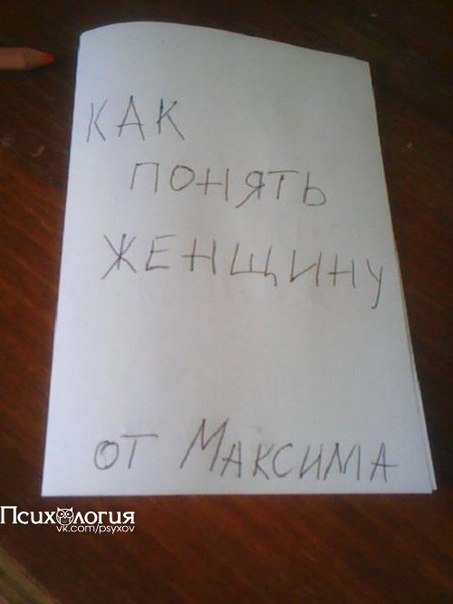 КАК
ПОНЯТЬ
ЖЕНЩИНУ
ОТ МАКСИМА
Психология
vk.com/psyxov